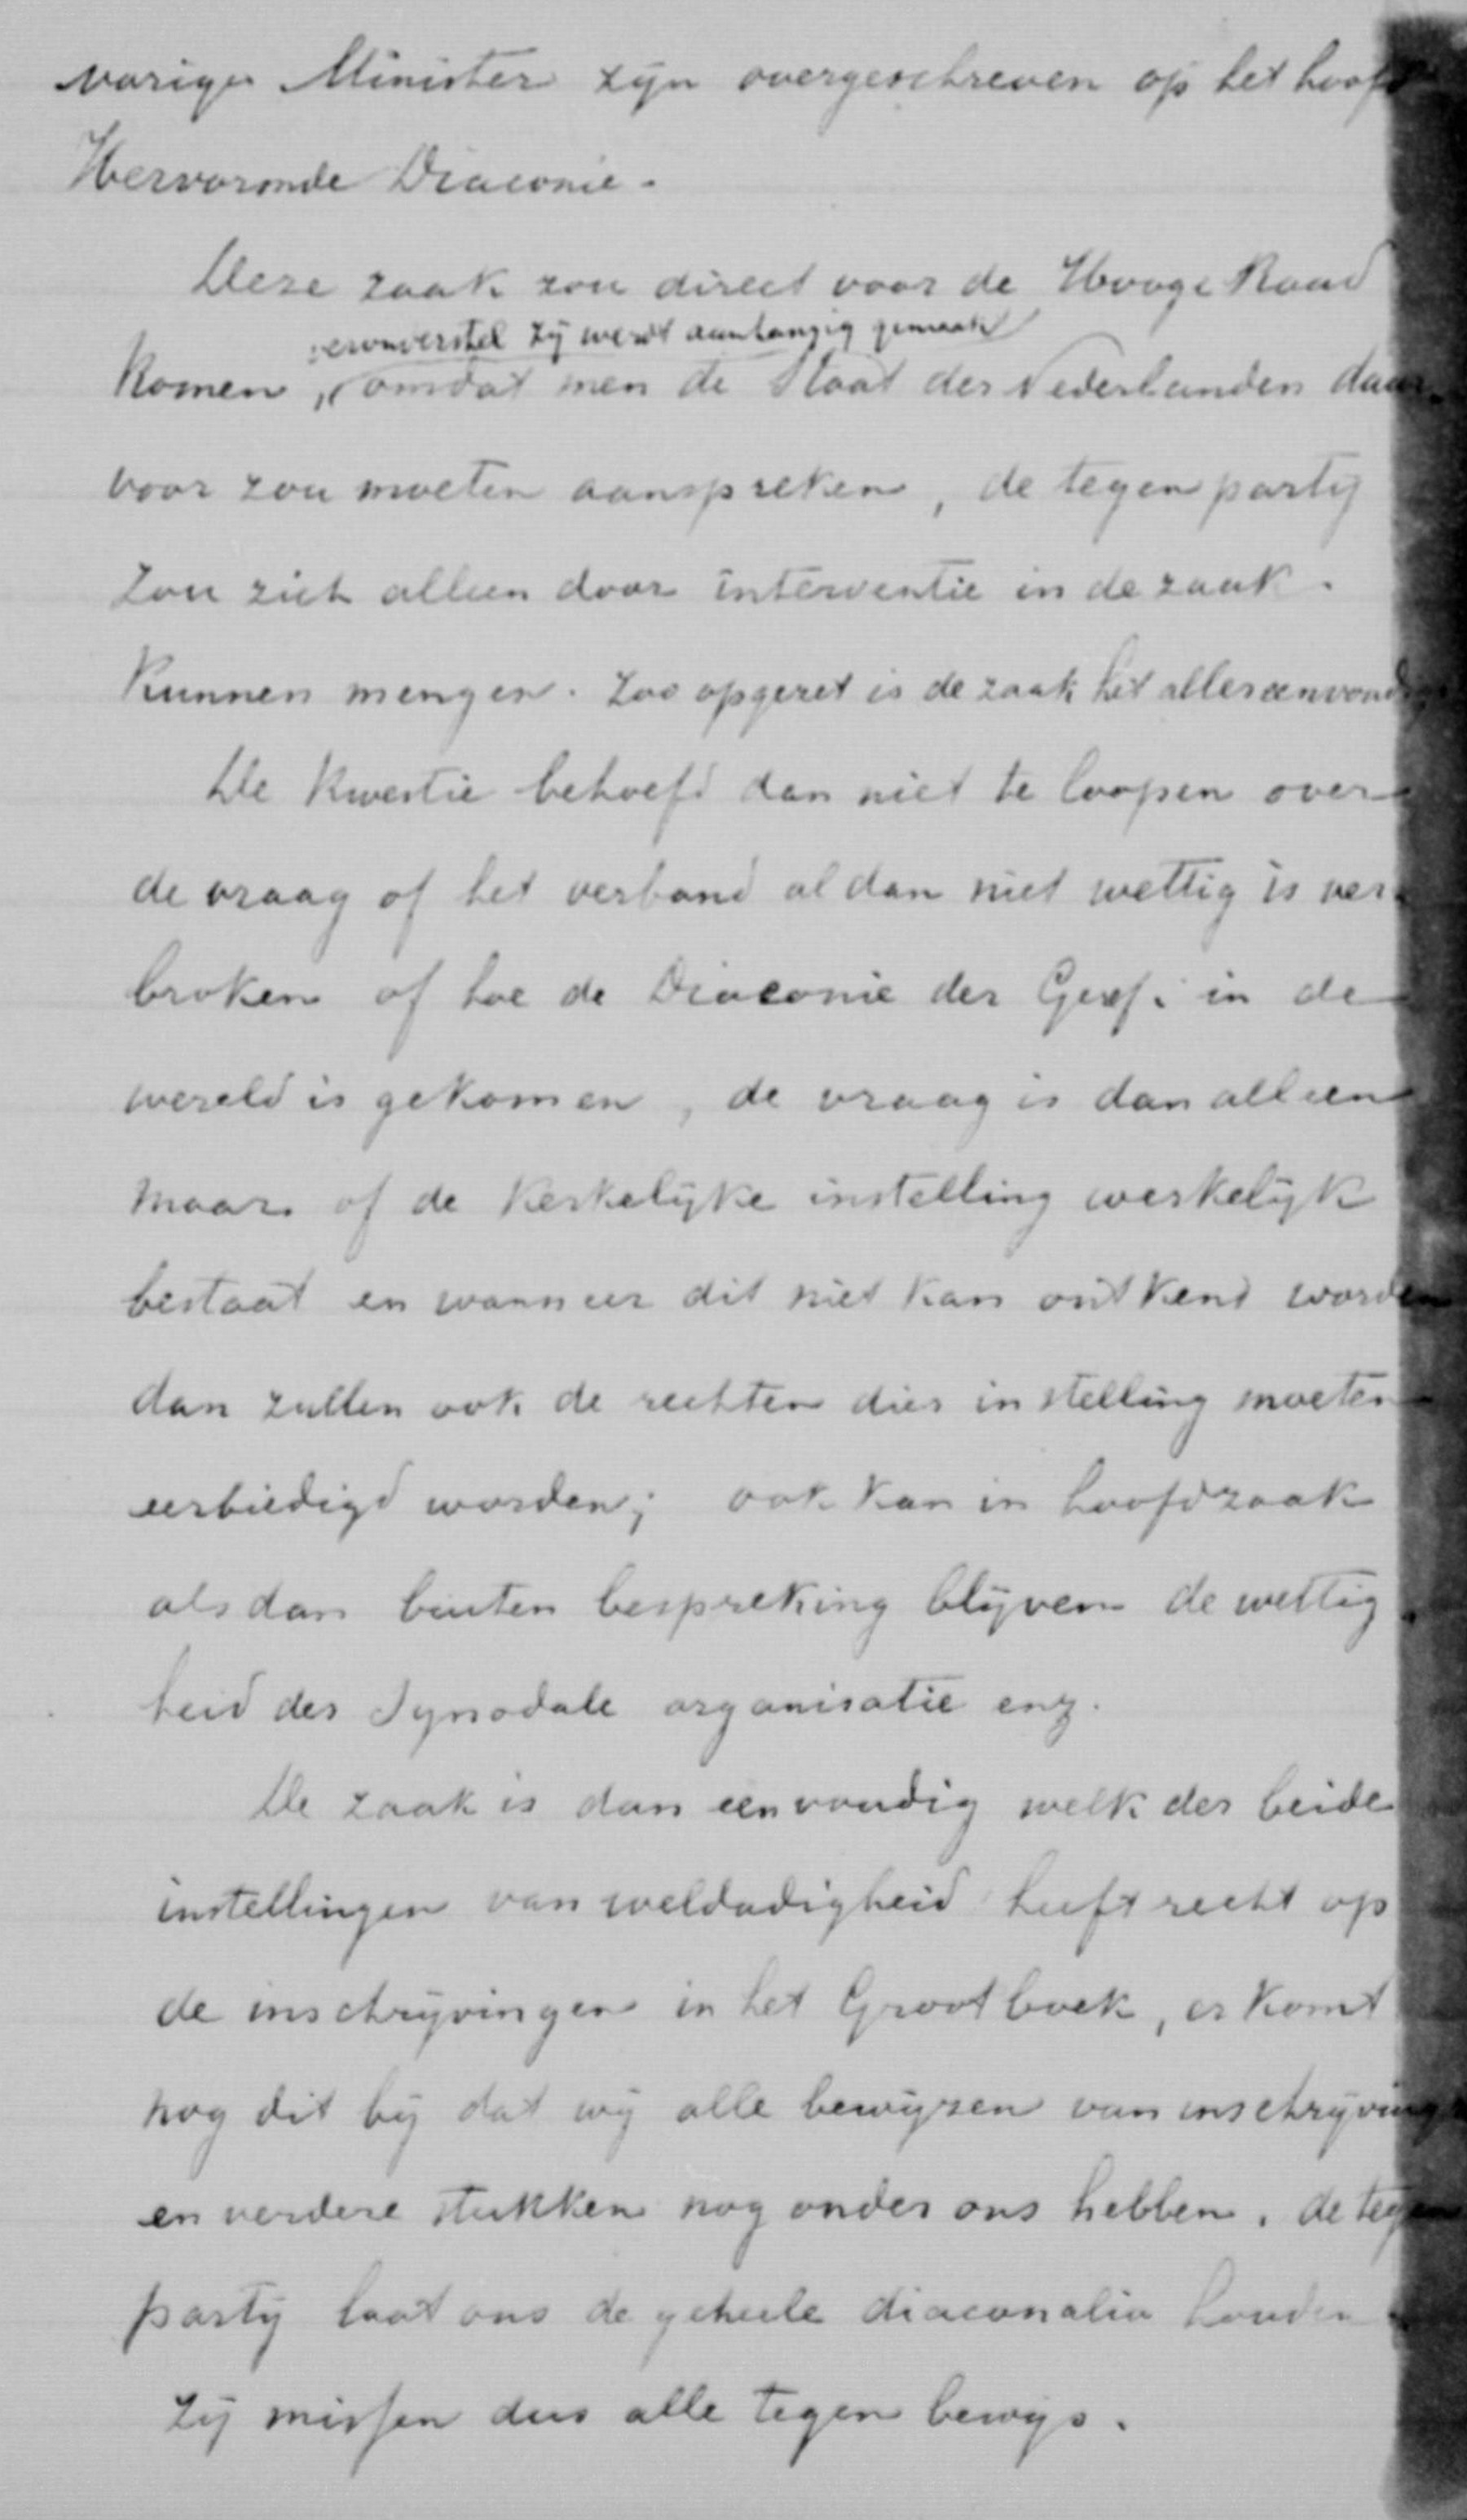 vorige Minister zyn overgeschreven op het hoofd
Hervormde Diaconie.
Deze zaak zou direct voor de Hooge Raad
verondersteld zij werdt aanhangig gemaakt
komen, omdat men de Staat der Nederlanden daar-
voor zou moeten aanspreken, de tegenpartij
zou zich alleen door interventie in de zaak
kunnen mengen. Zoo opgezet is de zaak het allereenvoudigst
De kwestie behoefd dan niet te loopen over
de vraag of het verband al dan niet wettig is ver-
broken of hoe de Diaconie der Geref. in de
wereld is gekomen, de vraag is dan alleen
maar of de kerkelijke instelling werkelijk
bestaat en wanneer dit niet kan ontkend worden
dan zullen ook de rechten dier instelling moeten
eerbiedigd worden; ook kan in hoofdzaak
alsdan buiten bespreking blijven de wettig-
heid der Synodale organisatie enz.
De zaak is dan eenvoudig welk der beide
instellingen van weldadigheid heeft recht op
de inschrijvingen in het Grootboek, er komt
nog dit bij dat wij alle bewijzen van inschrijving
en verdere stukken nog onder ons hebben. de tegen
partij laat ons de geheele diaconalia houden
zij missen dus alle tegen bewijs.